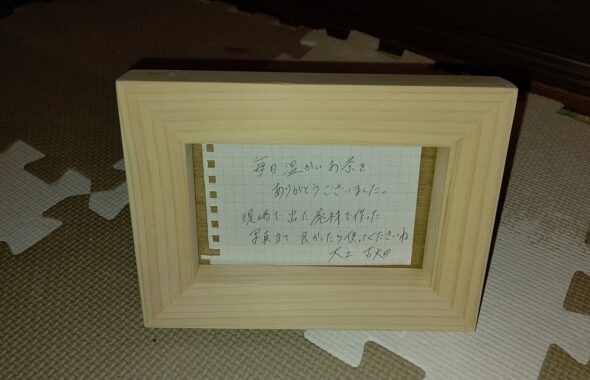 毎日温かいお茶を
ありがとうございました。
現場で出た廃材で作った
写真立て 良かったら使ってくださいね
大工 吉田